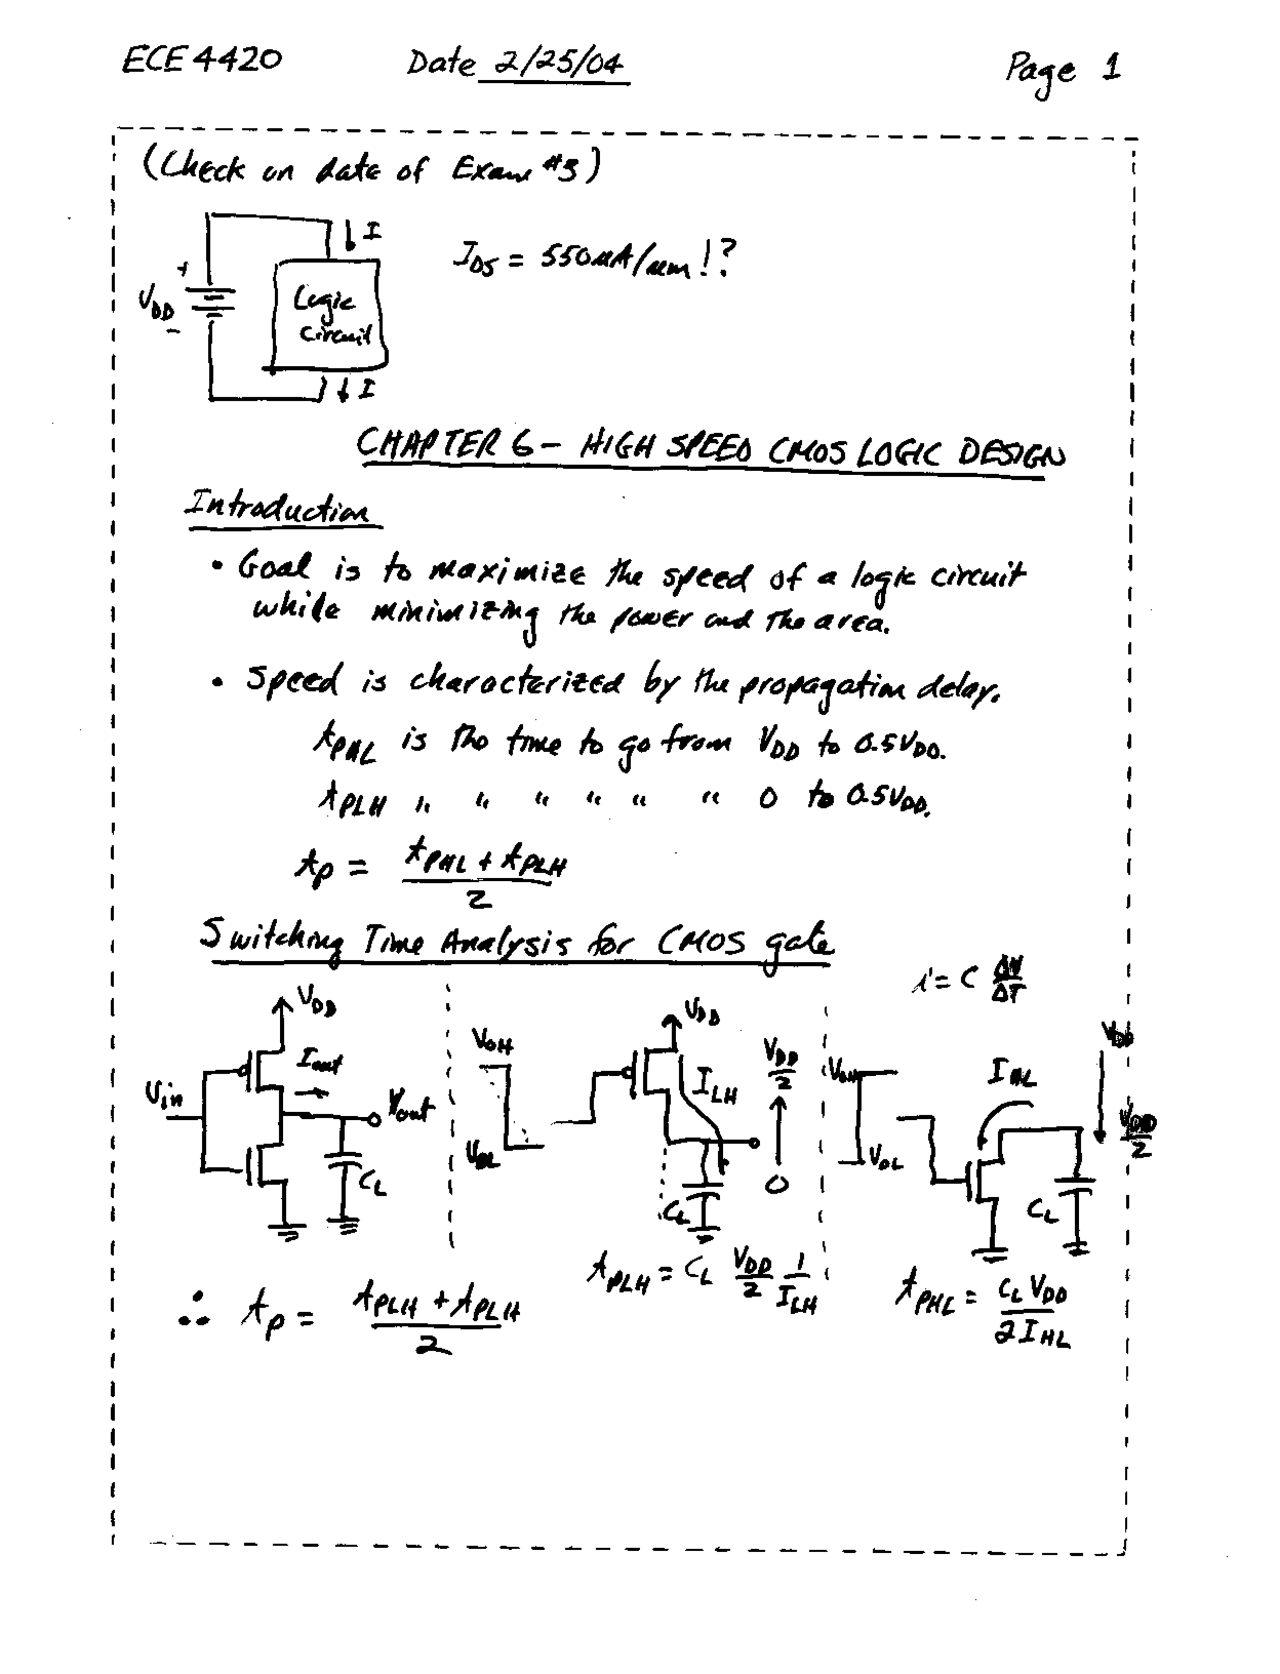 ECE 4420 Date 2/25/04 Page 1
(Check on date of Exam #3)
I
I_DS = 550μA/μm !?
+
V_DD
-
Logic
circuit
I
CHAPTER 6 - HIGH SPEED CMOS LOGIC DESIGN
Introduction
• Goal is to maximize the speed of a logic circuit
while minimizing the power and the area.
• Speed is characterized by the propagation delay.
t_PHL is the time to go from V_DD to 0.5V_DD.
t_PLH " " " " " " 0 to 0.5V_DD.
t_P = (t_PHL + t_PLH)/2
Switching Time Analysis for CMOS gate
i = C ΔV/ΔT
V_DD
I_out
V_in
V_out
C_L
V_OH
V_OL
V_DD
I_LH
V_DD/2
0
C_L
t_PLH = C_L V_DD/2 1/I_LH
V_OH
V_OL
I_HL
V_DD
V_DD/2
C_L
t_PHL = C_L V_DD / 2 I_HL
∴ t_P = (t_PLH + t_PLH)/2